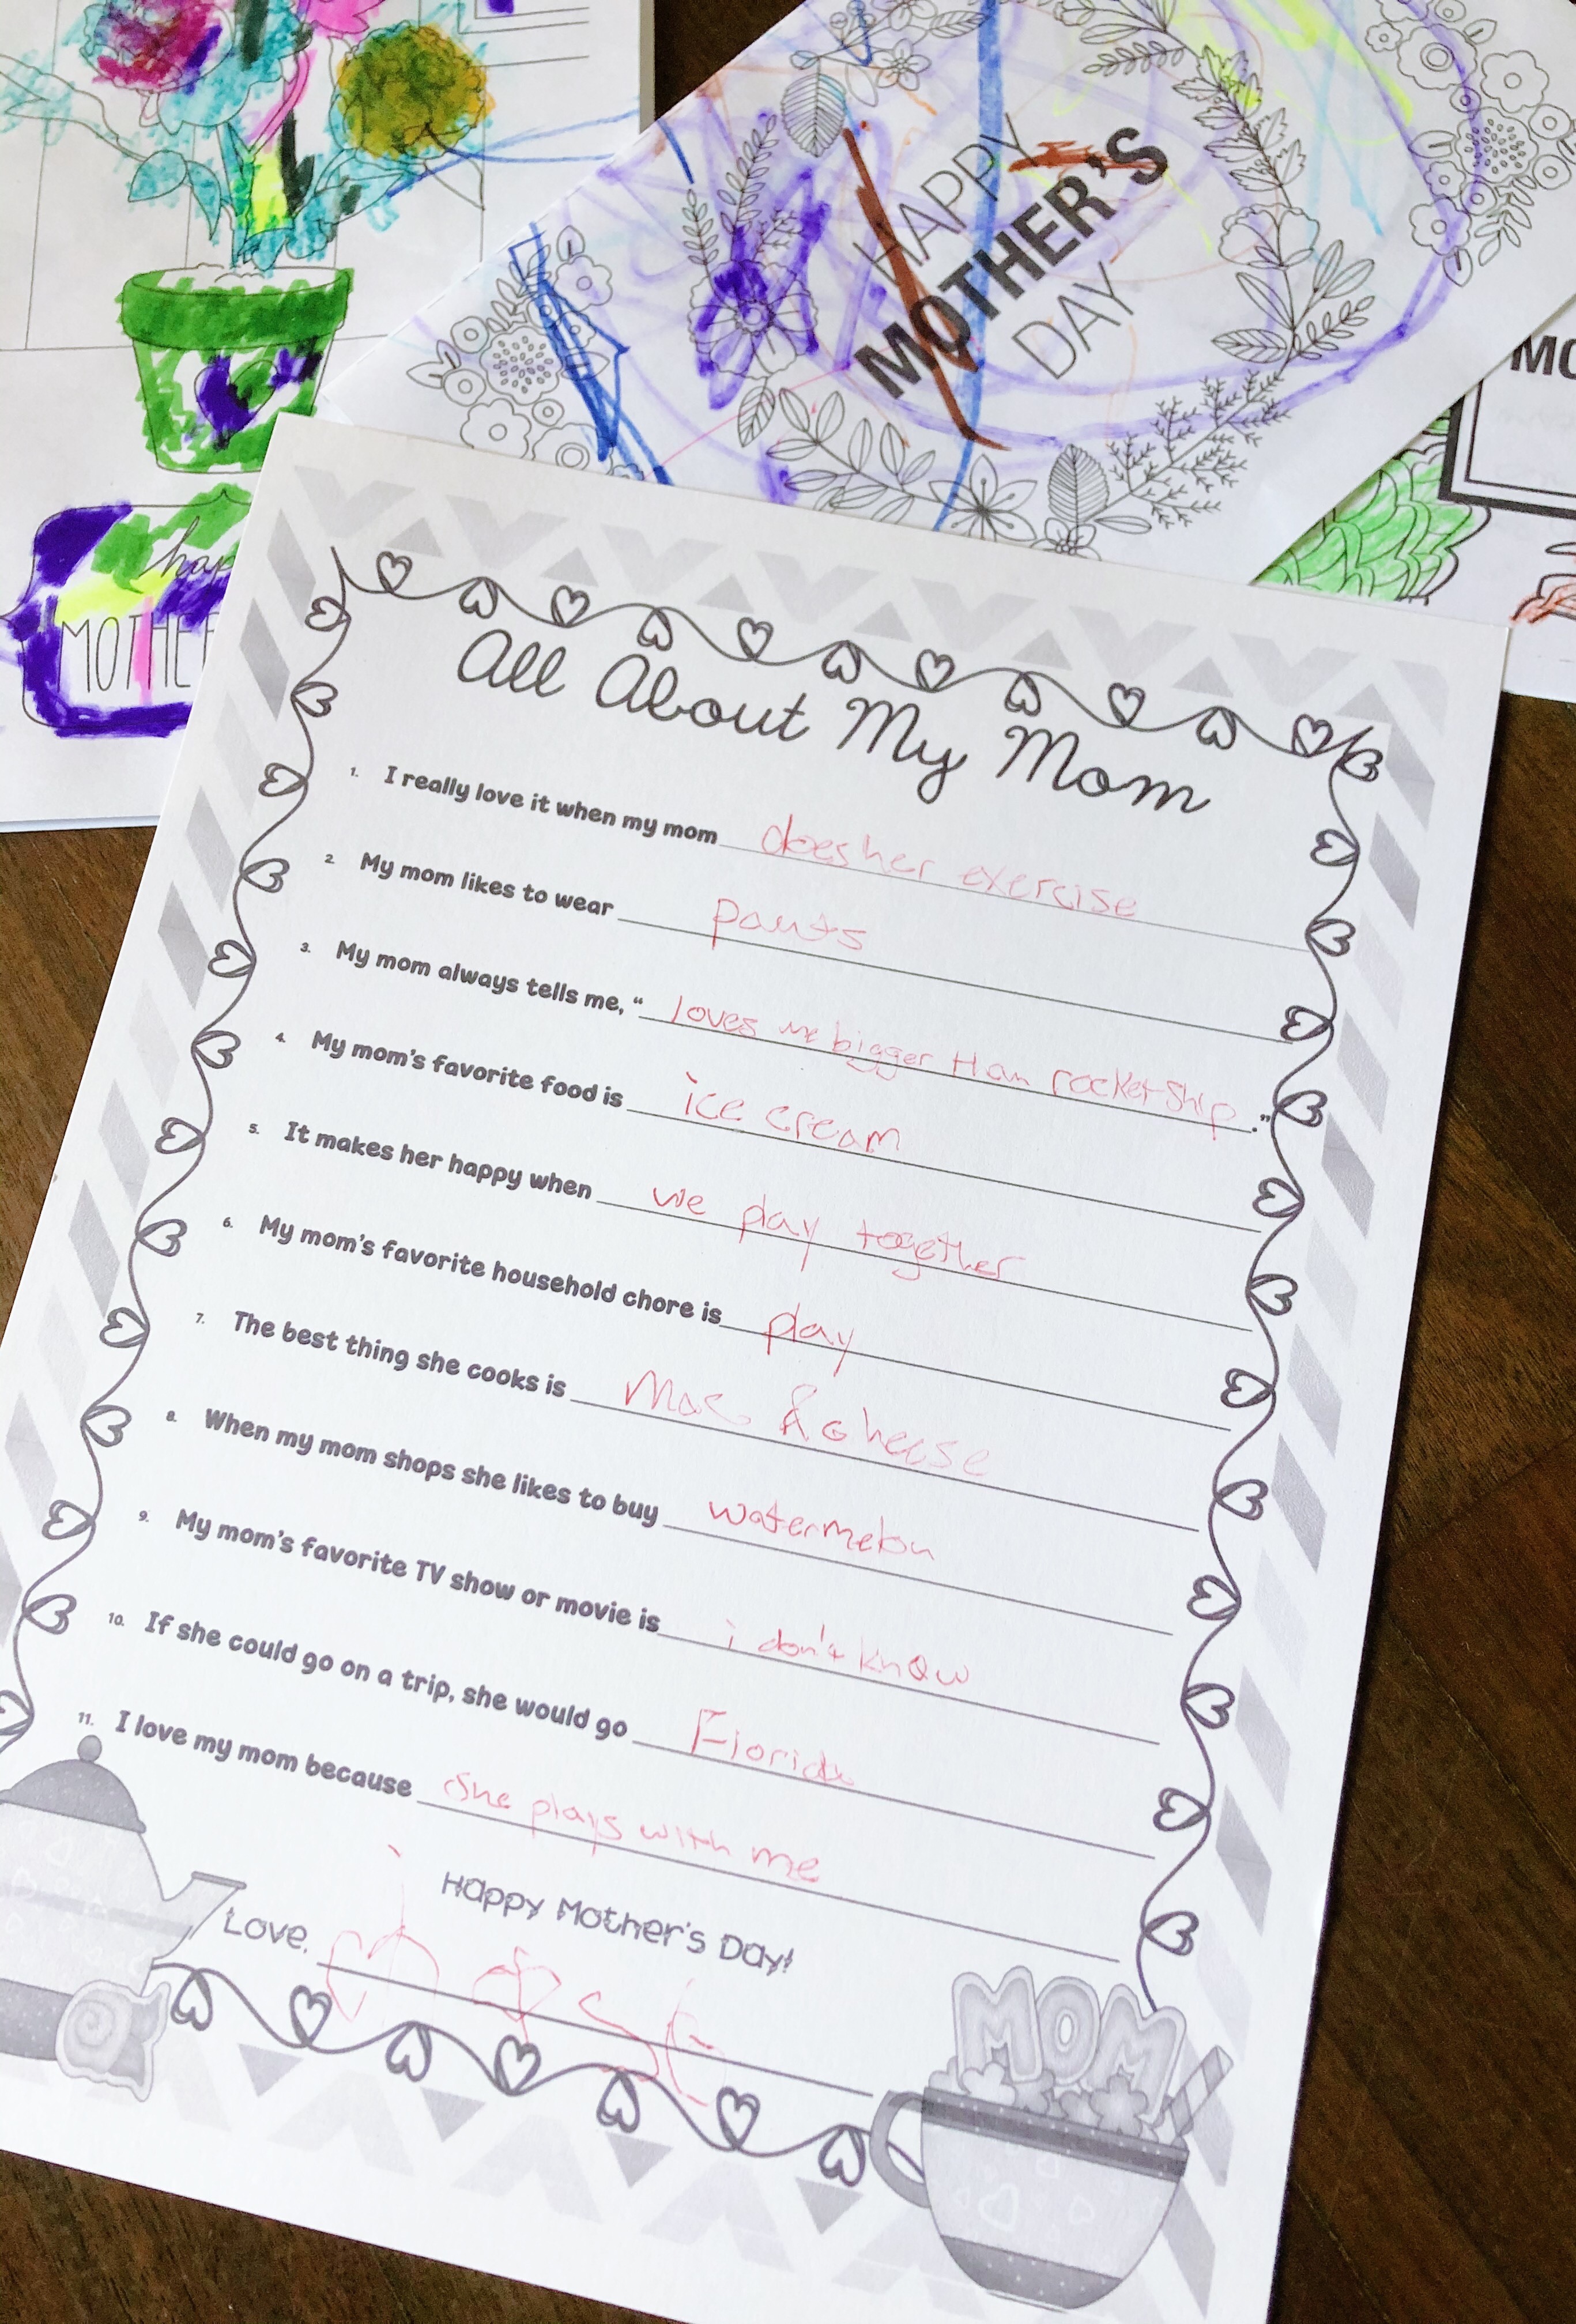 HAPPY
MOTHER'S
DAY
MO
hap
MOTHE
All About My Mom
1. I really love it when my mom does her exercise
2. My mom likes to wear pants
3. My mom always tells me, "loves me bigger than rocket ship."
4. My mom's favorite food is ice cream
5. It makes her happy when we play together
6. My mom's favorite household chore is play
7. The best thing she cooks is Mac & cheese
8. When my mom shops she likes to buy watermelon
9. My mom's favorite TV show or movie is i don't know
10. If she could go on a trip, she would go Florida
11. I love my mom because she plays with me
Happy Mother's Day!
Love,
MOM